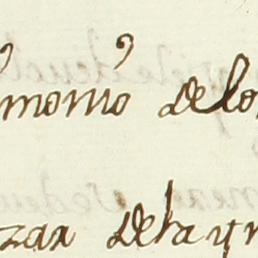 monio delo
zar dela yn